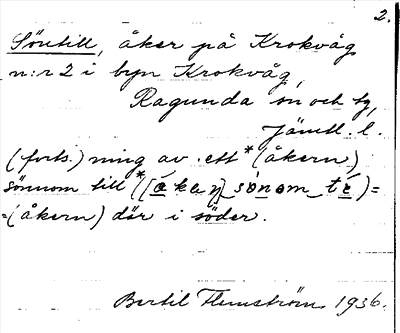 2.
Söntill, åker på Krokvåg
n:r 2 i byn Krokvåg,
Ragunda sn och tg,
Jämtl. l.
(forts.) ning av ett *(åkern)
sönnom till *([a kaŋ] sònom tè)=
=(åkern) där i söder.
Bertil Flemström 1936.